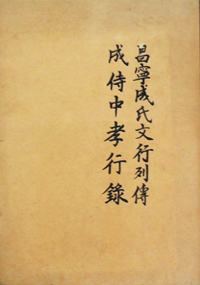 昌寧成氏文行列傳
成侍中孝行錄